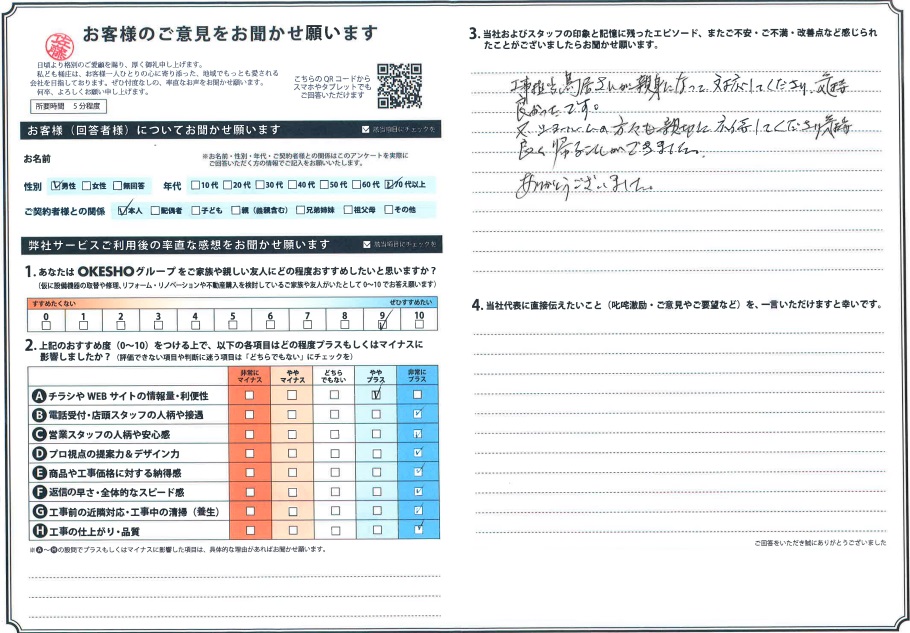 佐藤
お客様のご意見をお聞かせ願います
日頃より格別のご愛顧を賜り、厚く御礼申し上げます。
私ども桶庄は、お客様一人ひとりの心に寄り添った、地域でもっとも愛される
会社を目指しております。ぜひ忖度なしの、率直なお声をお聞かせ願います。
何卒、よろしくお願い申し上げます。
所要時間 5分程度
こちらのQRコードから
スマホやタブレットでも
ご回答いただけます
お客様(回答者様)についてお聞かせ願います
該当項目にチェックを
お名前
※お名前・性別・年代・ご契約者様との関係はこのアンケートを実際に
ご回答いただく方の情報でご記入をお願いいたします。
性別 男性 女性 無回答 年代 10代 20代 30代 40代 50代 60代 70代以上
ご契約者様との関係 本人 配偶者 子ども 親(義親含む) 兄弟姉妹 祖父母 その他
弊社サービスご利用後の率直な感想をお聞かせ願います
該当項目にチェックを
1.あなたは OKESHOグループをご家族や親しい友人にどの程度おすすめしたいと思いますか?
(仮に設備機器の取替や修理、リフォーム・リノベーションや不動産購入を検討しているご家族や友人がいたとして0〜10でお答え願います)
すすめたくない ぜひすすめたい
0 1 2 3 4 5 6 7 8 9 10
2.上記のおすすめ度(0〜10)をつける上で、以下の各項目はどの程度プラスもしくはマイナスに
影響しましたか?(評価できない項目や判断に迷う項目は「どちらでもない」にチェックを)
非常にマイナス ややマイナス どちらでもない ややプラス 非常にプラス
A チラシやWEBサイトの情報量・利便性
B 電話受付・店頭スタッフの人柄や接遇
C 営業スタッフの人柄や安心感
D プロ視点の提案力&デザイン力
E 商品や工事価格に対する納得感
F 返信の早さ・全体的なスピード感
G 工事前の近隣対応・工事中の清掃(養生)
H 工事の仕上がり・品質
※A〜Hの設問でプラスもしくはマイナスに影響した項目は、具体的な理由があればお聞かせ願います。
3.当社およびスタッフの印象と記憶に残ったエピソード、またご不安・ご不満・改善点など感じられ
たことがございましたらお聞かせ願います。
工事担当鳥居さんが親身になって対応してくださり、
良かったです。
又、の方々も親切に応待してくださり気持
良く帰ることができました。
ありがとうございました。
4.当社代表に直接伝えたいこと(叱咤激励・ご意見やご要望など)を、一言いただけますと幸いです。
ご回答をいただき誠にありがとうございました